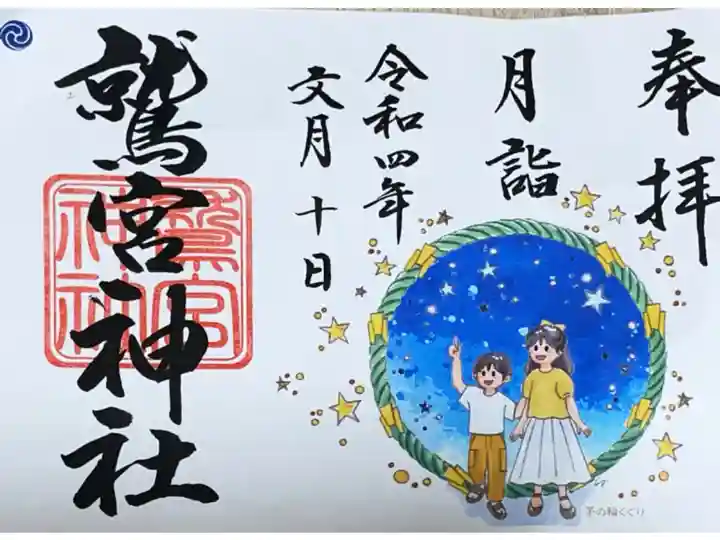 奉拝
月詣
令和四年
文月十日
鷲宮神社
鷲宮
神社
茅の輪くぐり